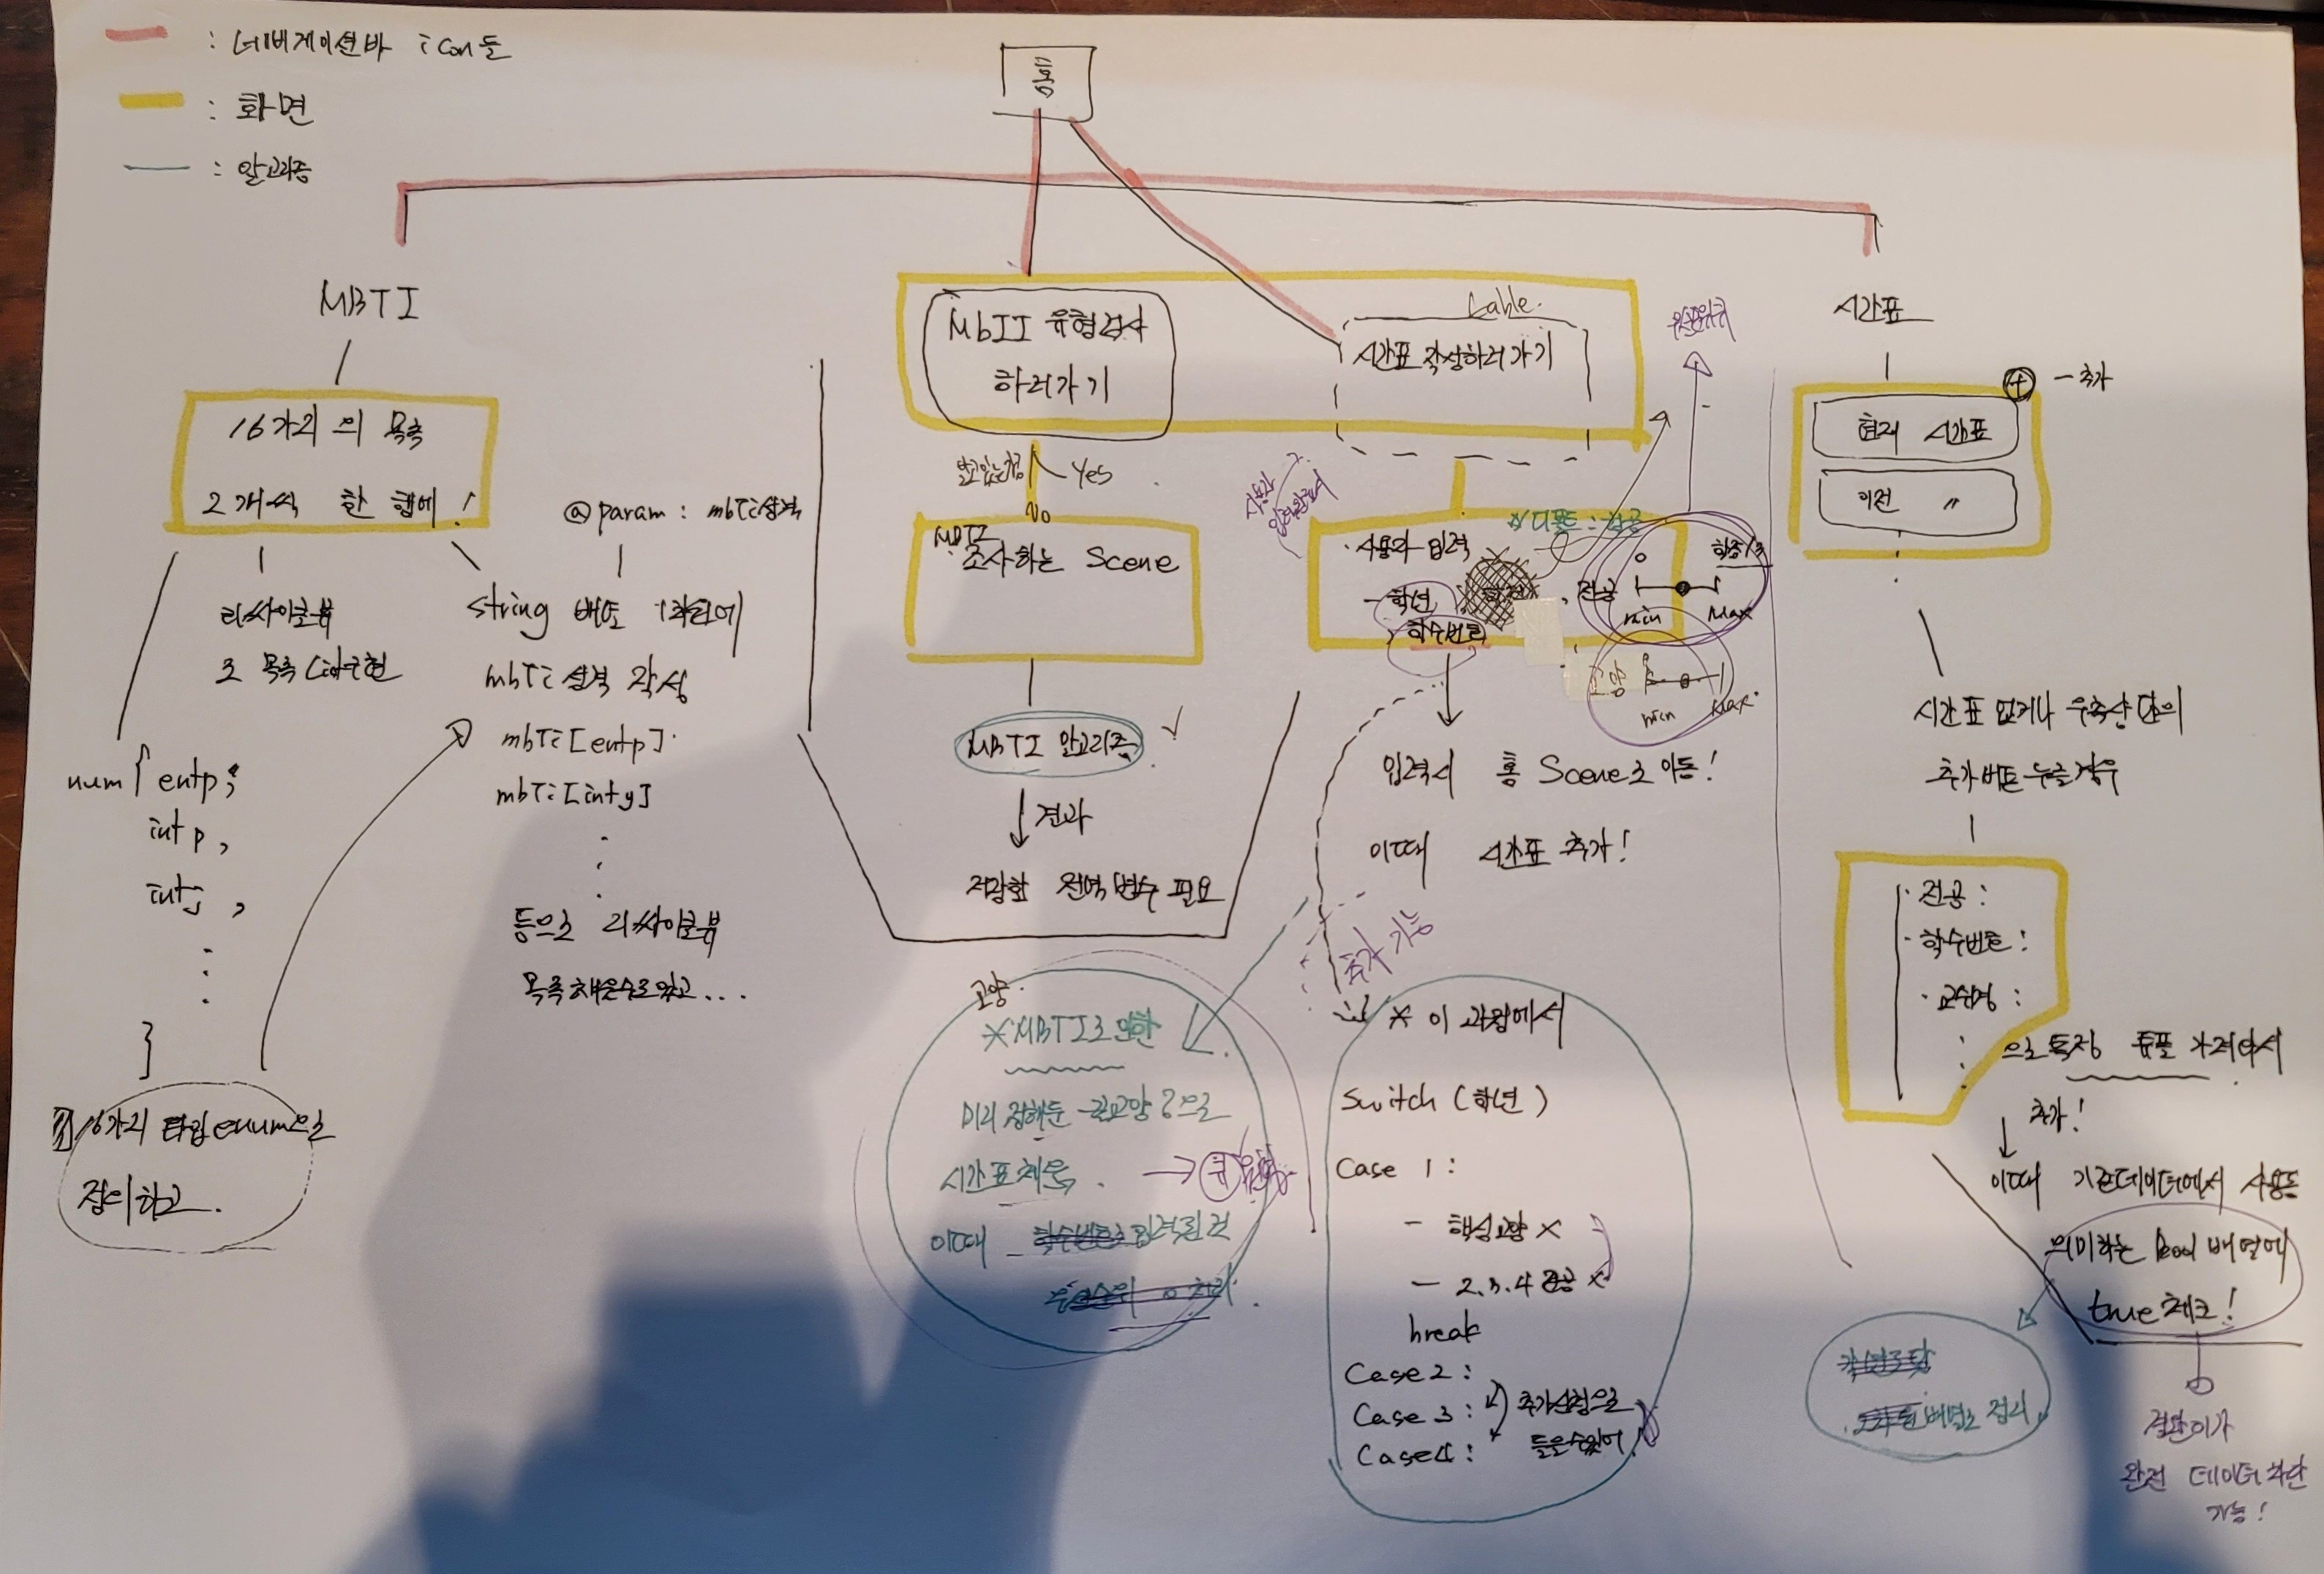 : 네비게이션바 icon들
: 화면
: 알고리즘
홈
MBTI
16가지의 목록
2개씩 한 행에!
리싸이클뷰
로 목록 다구현
num { entp;
intp,
intj,
}
16가지 타입 enum으로
정의하고.
@param : mbti성격
string 배열 1차원에
mbti성격 작성
mbti[entp].
mbti[intj]
등으로 리싸이클뷰
목록 채울수도있고...
MbTI 유형검사
하러가기
table.
시간표 작성하러가기
알고있는경우
Yes
No
MBTI
조사하는 Scene
MBTI 알고리즘
결과
저장할 전역변수 필요
우선순위
· 사용자 입력
☆디폴트:
- 학년
, 전공
학수번호
학종/3
min Max
교양
min Max.
입력시 홈 Scene으로 이동!
이때 시간표 추가!
추가 기능
교양.
*MBTI로 인한
미리 정해둔 교양으로
시간표 채움.
→ 큐
이때 학수번호로 입력된 건
우선순위 0 처리.
* 이 과정에서
Switch (학년)
Case 1 :
- 핵심교양 x
- 2.3.4 전공 x
break
Case2 :
Case 3 : 추가신청으로
Case4 : 들을수있어
시간표
+ - 추가
현재 시간표
이전 〃
시간표 없거나 우측상단의
추가버튼 누를경우
· 전공 :
· 학수번호 :
· 교수명 :
으로 특정 튜플 가져와서
추가!
이때 기존데이터에서 사용중
의미하는 bool 배열에
true체크!
배열로 정리
완전 데이터 차단
가능!